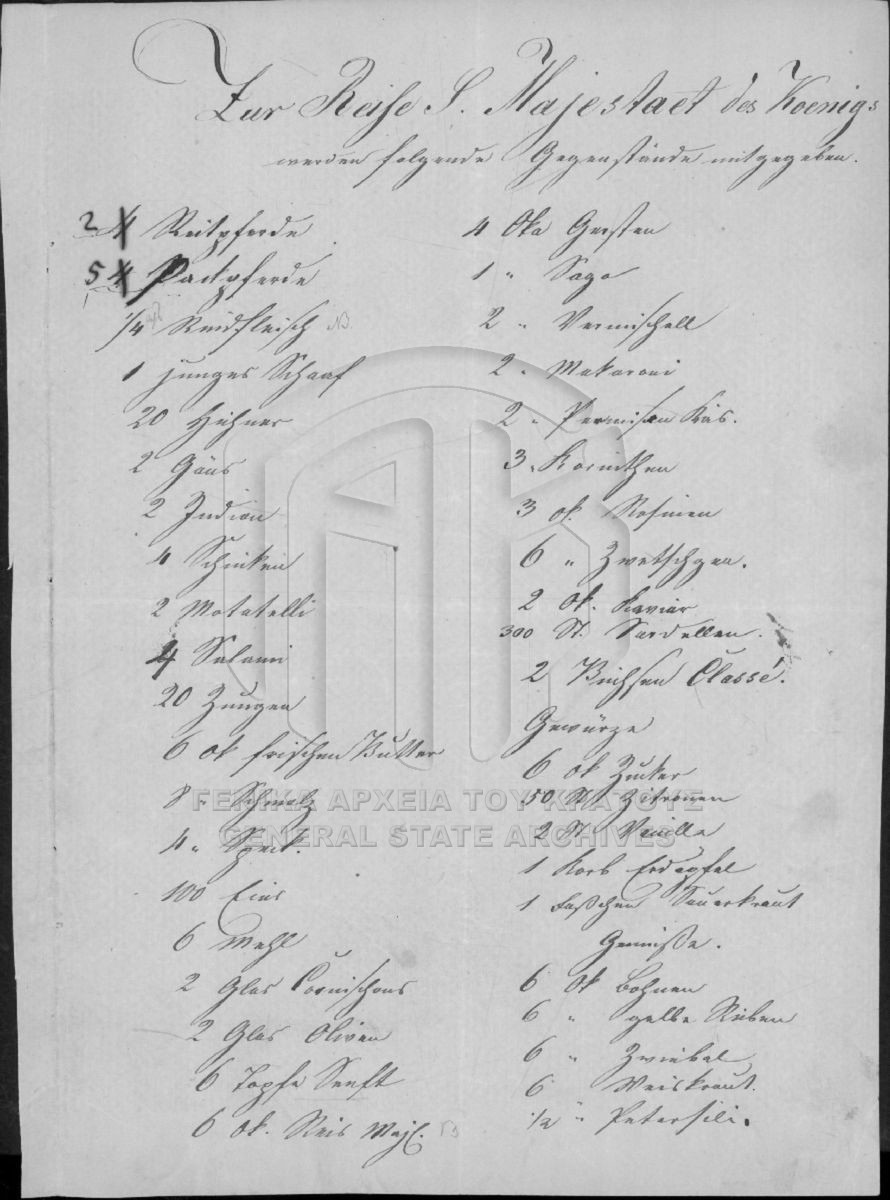 Zur Reise S. Majestaet des Koenigs
werden folgende Gegenstände mitgegeben.
2 4 Reitpferde
5 4 Packpferde
1/4 Rindfleisch NB.
1 junges Schaaf
20 Hühner
2 Gäns
2 Indian
4 Schinken
2 Motatelli
4 Salami
20 Zungen
6 ok frischen Butter
8 " Schmalz
4 " Speck.
100 Eier
6 Mehl
2 Glas Cornischons
2 Glas Oliven
6 Töpfe Senft
6 ok. Reis
4 Oka Gersten
1 " Sago
2 " Vermischell
2 " Makaroni
2 " Permisan Käs.
3 " Korinthen
3 ok. Rosinen
6 " Zwetschgen.
2 ok. Kaviar
300 St. Sardellen.
2 Büchsen Classé.
Gewürze
6 ok Zucker
50 St. Zitronen
2 St. Vanille
1 Korb Erdäpfel
1 Faßchen Sauerkraut
Gemüße.
6 Ok Bohnen
6 " gelbe Rüben
6 " Zwiebel
6 Weiskraut.
1/2 " Petersili.
ΓΕΝΙΚΑ ΑΡΧΕΙΑ ΤΟΥ ΚΡΑΤΟΥΣ
GENERAL STATE ARCHIVES